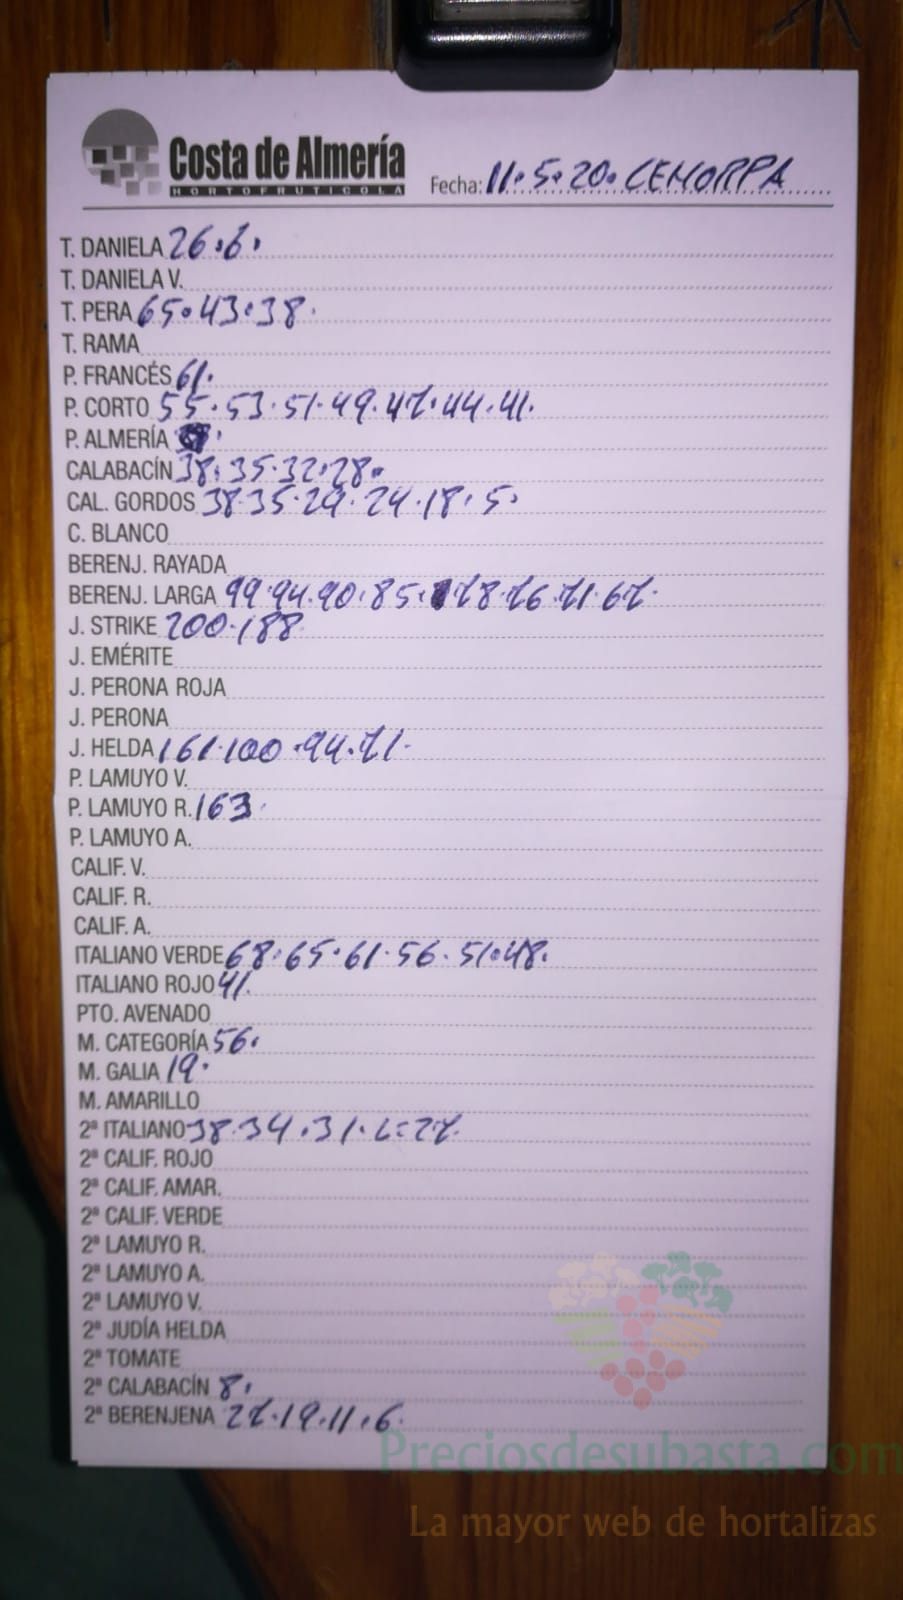 Costa de Almería
HORTOFRUTICOLA
Fecha: 11.5.20. CEHORPA
T. DANIELA 26.6.
T. DANIELA V.
T. PERA 65.43.38.
T. RAMA
P. FRANCÉS 61.
P. CORTO 55.53.51.49.47.44.41.
P. ALMERÍA
CALABACÍN 38.35.32.28.
CAL. GORDOS 38.35.29.24.18.5.
C. BLANCO
BERENJ. RAYADA
BERENJ. LARGA 99.94.90.85.78.76.71.67.
J. STRIKE 200.188
J. EMÉRITE
J. PERONA ROJA
J. PERONA
J. HELDA 161.100.94.71.
P. LAMUYO V.
P. LAMUYO R. 163.
P. LAMUYO A.
CALIF. V.
CALIF. R.
CALIF. A.
ITALIANO VERDE 68.65.61.56.51.48.
ITALIANO ROJO 41.
PTO. AVENADO
M. CATEGORÍA 56.
M. GALIA 19.
M. AMARILLO
2ª ITALIANO 38.34.31.27.
2ª CALIF. ROJO
2ª CALIF. AMAR.
2ª CALIF. VERDE
2ª LAMUYO R.
2ª LAMUYO A.
2ª LAMUYO V.
2ª JUDÍA HELDA
2ª TOMATE
2ª CALABACÍN 8.
2ª BERENJENA 27.19.11.6.
Preciosdesubasta.com
La mayor web de hortalizas